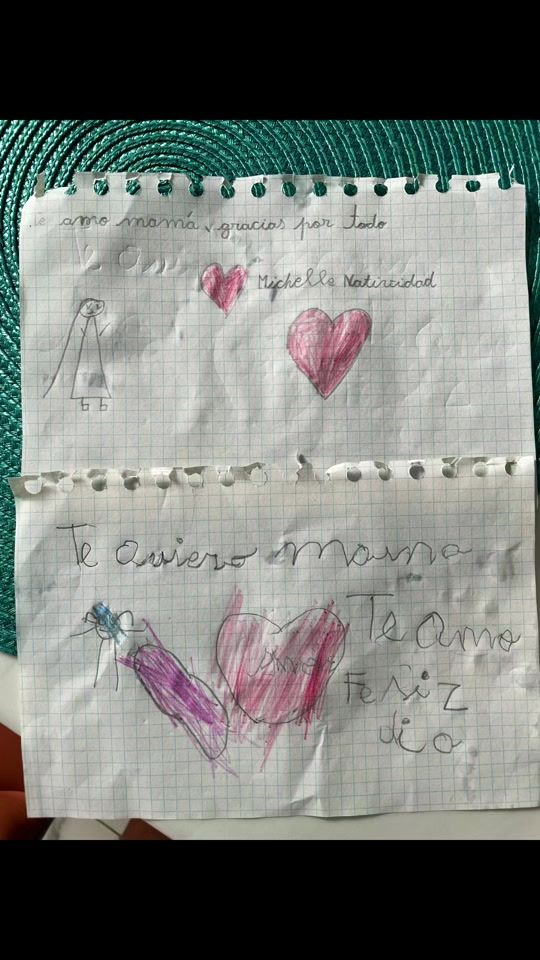 te amo mamá, gracias por todo
Michelle Natircidad
Te quiero mama
Te amo
Amor
Feliz
dia